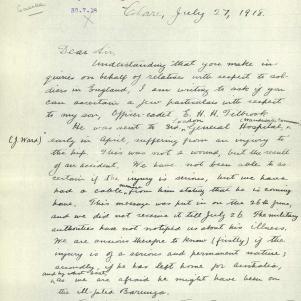 30.7.18
Clare, July 27, 1918.
Dear Sir,
Understanding that you make in-
quiries on behalf of relatives with respect to sol-
diers in England, I am writing to ask if you
can ascertain a few particulars with respect
to my son, Officer-cadet E. H. H. Filbrook
He was sent to 3rd London General Hospital,
(J. Ward) early in April, suffering from an injury to
the hip. This was not a wound, but the result
of an accident. We have not been able to as-
certain if the injury is serious, but we have
had a cable from him stating that he is coming
home. This message was put in on the 26th June,
and we did not receive it till July 26. The military
authorities had not notified us about his illness.
We are anxious therefore to know (firstly) if the
injury is of a serious and permanent nature;
secondly, if he has left home for Australia,
as we are afraid he might have been on
the ill-fated Barunga.